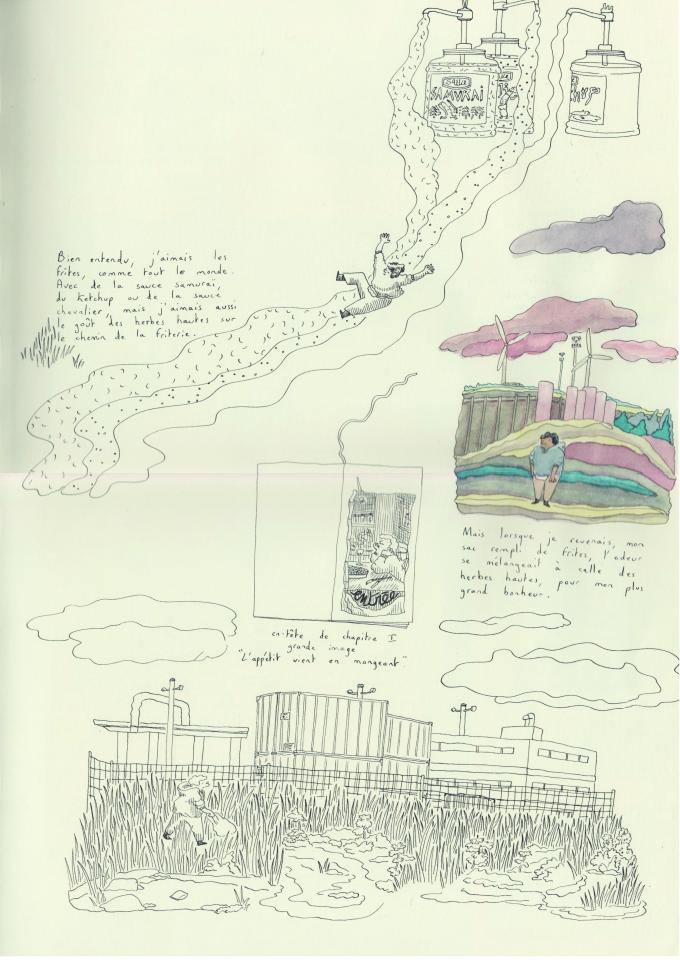 Sauce
SAMURAI
Bien entendu, j'aimais les
frites, comme tout le monde.
Avec de la sauce samurai,
du ketchup ou de la sauce
chevalier, mais j'aimais aussi
le goût des herbes hautes sur
le chemin de la friterie.
Mais lorsque je revenais, mon
sac rempli de frites, l'odeur
se mélangeait à celle des
herbes hautes, pour mon plus
grand bonheur.
entrée
en-tête de chapitre I
grande image
"L'appétit vient en mangeant"